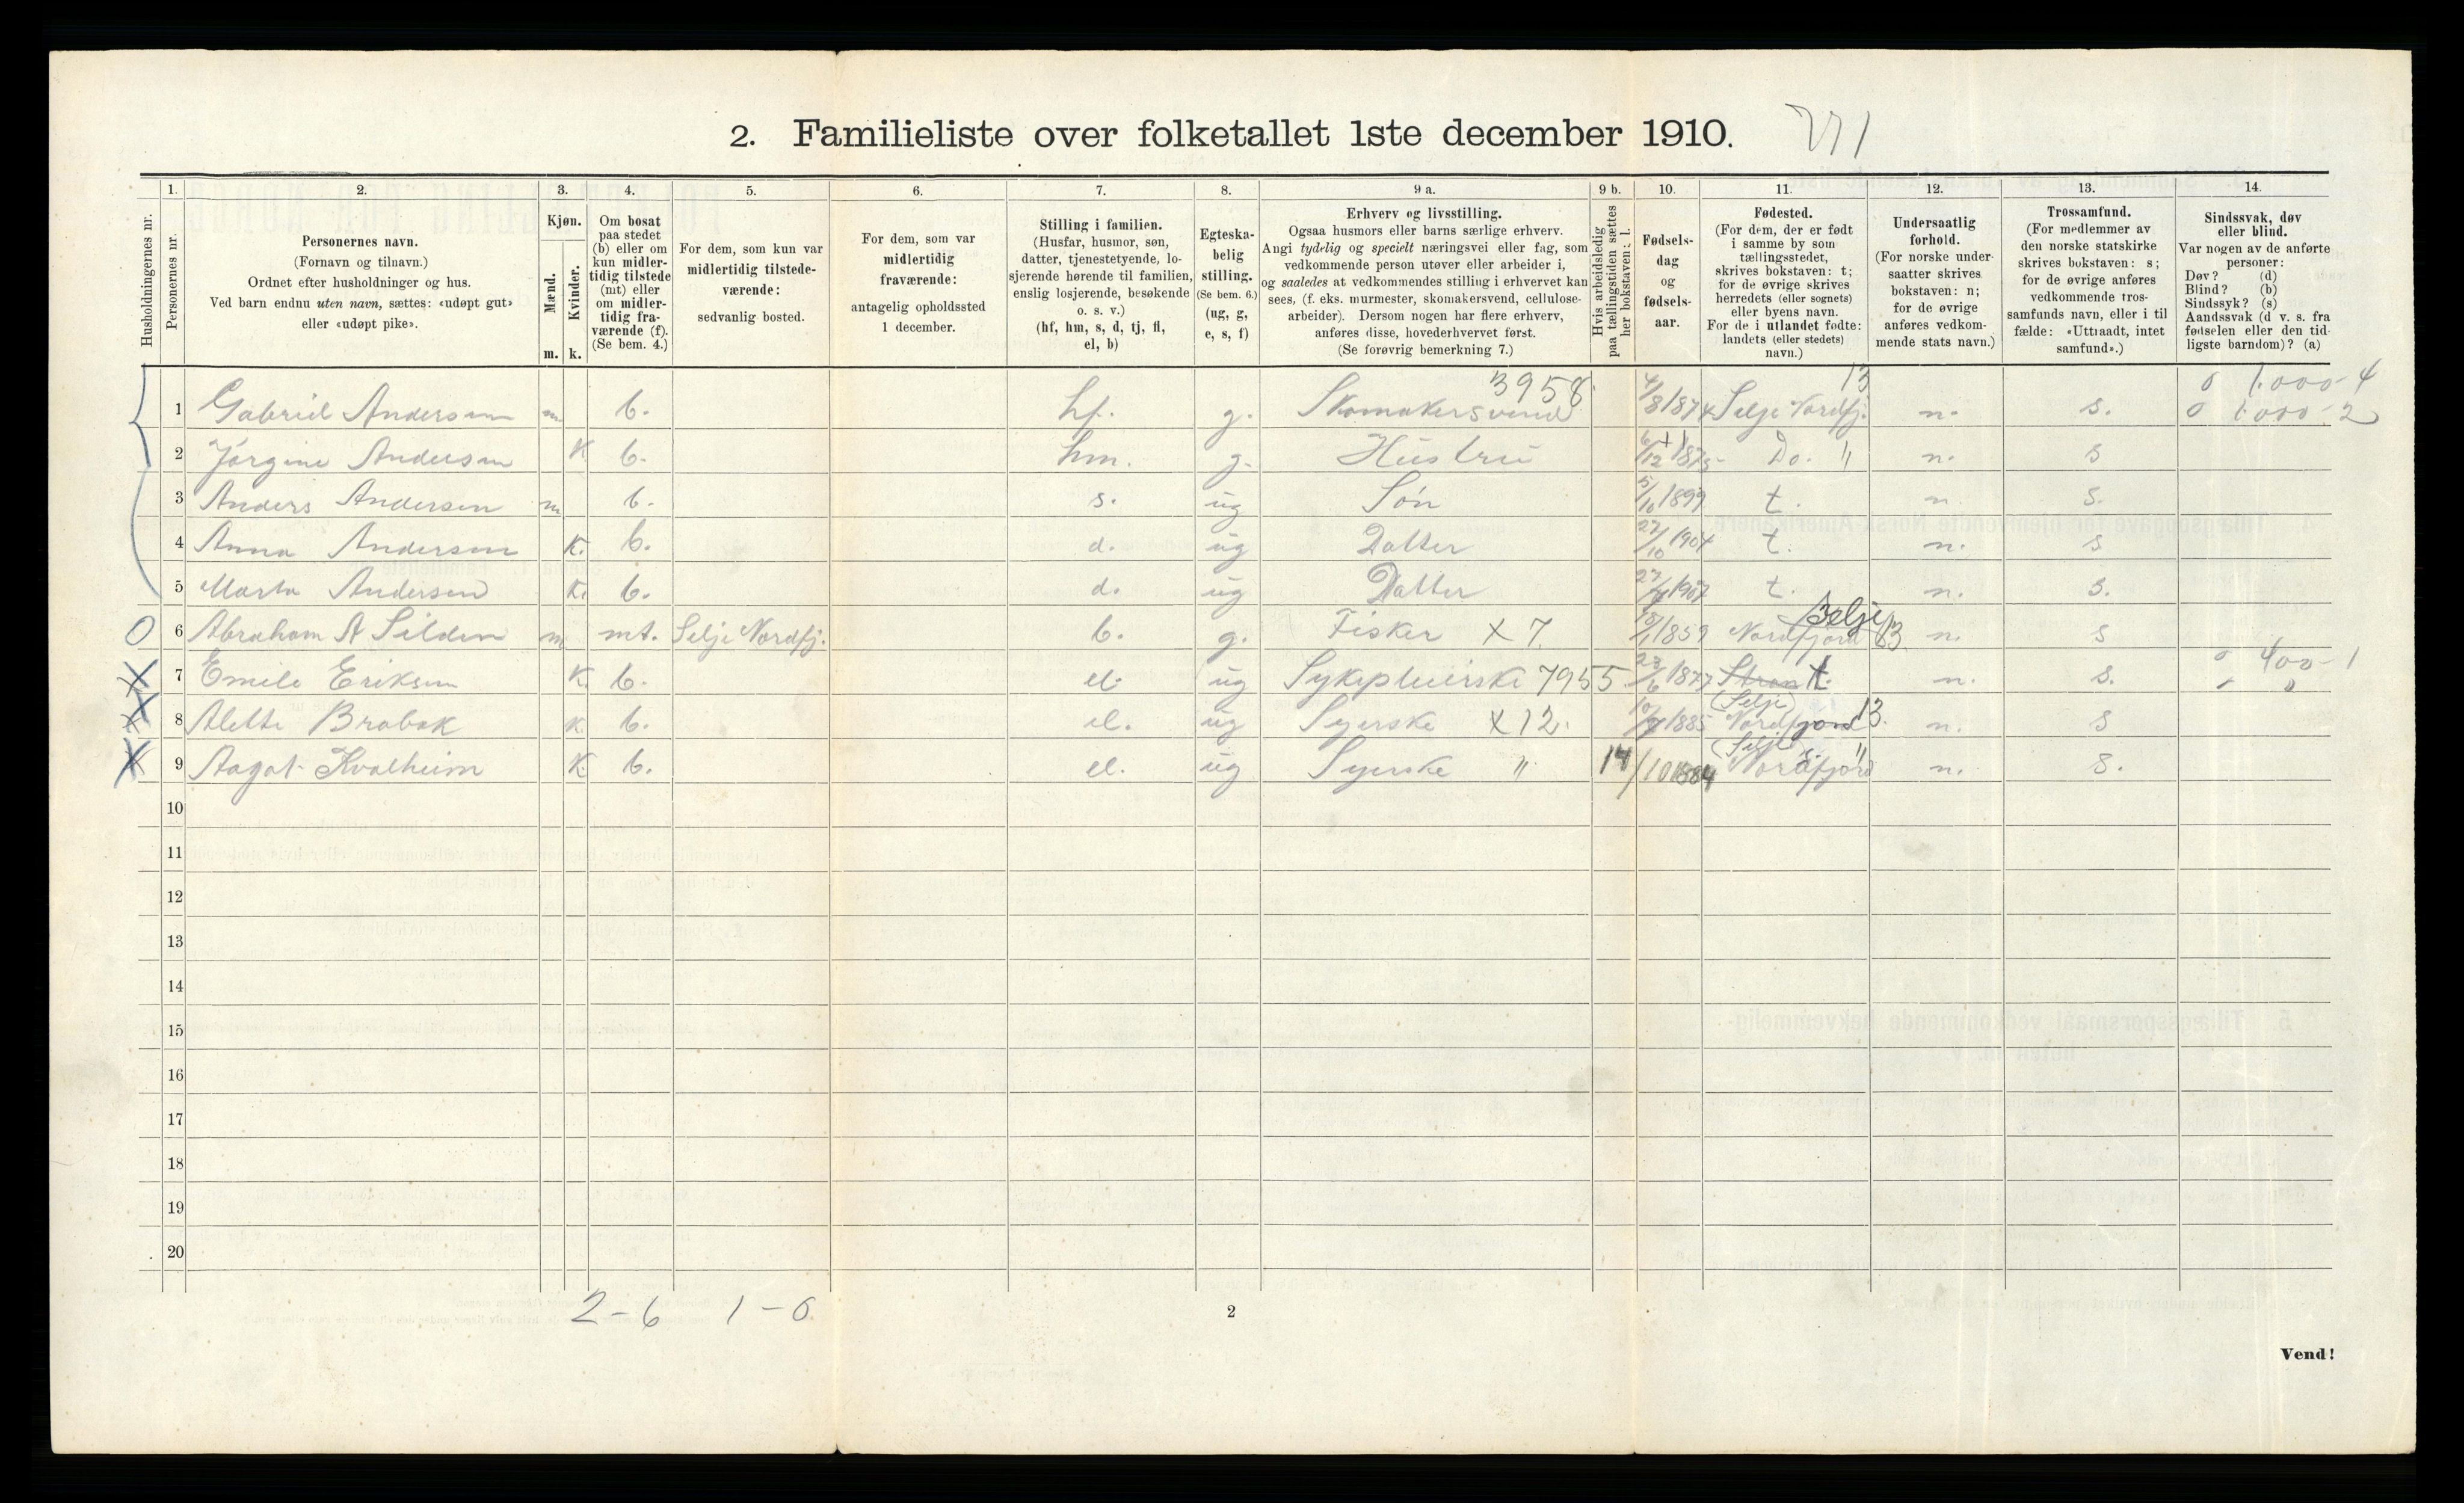 2. Familieliste over folketallet 1ste december 1910.
Husholdningernes nr.
1. Personernes nr.
2. Personernes navn.
(Fornavn og tilnavn.)
Ordnet efter husholdninger og hus.
Ved barn endnu uten navn, sættes: «udøpt gut»
eller «udøpt pike».
3. Kjøn.
Mænd. m.
Kvinder. k.
4. Om bosat
paa stedet
(b) eller om
kun midler-
tidig tilstede
(mt) eller
om midler-
tidig fra-
værende (f).
(Se bem. 4.)
5. For dem, som kun var
midlertidig tilstede-
værende:
sedvanlig bosted.
6. For dem, som var
midlertidig
fraværende:
antagelig opholdssted
1 december.
7. Stilling i familien.
(Husfar, husmor, søn,
datter, tjenestetyende, lo-
sjerende hørende til familien,
enslig losjerende, besøkende
o. s. v.)
(hf, hm, s, d, tj, fl,
el, b)
8. Egteska-
belig
stilling.
(Se bem. 6.)
(ug, g,
e, s, f)
9 a. Erhverv og livsstilling.
Ogsaa husmors eller barns særlige erhverv.
Angi tydelig og specielt næringsvei eller fag, som
vedkommende person utøver eller arbeider i,
og saaledes at vedkommendes stilling i erhvervet kan
sees, (f. eks. murmester, skomakersvend, cellulose-
arbeider). Dersom nogen har flere erhverv,
anføres disse, hovederhvervet først.
(Se forøvrig bemerkning 7.)
9 b. Hvis arbeidsledig
paa tællingstiden sættes
her bokstaven: l.
10. Fødsels-
dag
og
fødsels-
aar.
11. Fødested.
(For dem, der er født
i samme by som
tællingsstedet,
skrives bokstaven: t;
for de øvrige skrives
herredets (eller sognets)
eller byens navn.
For de i utlandet fødte:
landets (eller stedets)
navn.)
12. Undersaatlig
forhold.
(For norske under-
saatter skrives
bokstaven: n;
for de øvrige
anføres vedkom-
mende stats navn.)
13. Trossamfund.
(For medlemmer av
den norske statskirke
skrives bokstaven: s;
for de øvrige anføres
vedkommende tros-
samfunds navn, eller i til-
fælde: «Uttraadt, intet
samfund».)
14. Sindssvak, døv
eller blind.
Var nogen av de anførte
personer:
Døv? (d)
Blind? (b)
Sindssyk? (s)
Aandssvak (d. v. s. fra
fødselen eller den tid-
ligste barndom)? (a)
3958 13 0 1.000-4
1 Gabriel Andersen m b. hf. g. Skomakersvend 4/8 1874 Selje Nordfj. n. s. 0 1.000-2
2 Jørgine Andersen K b. hm. g. Hustru 6/12 1875 Do. " n. s
3 Anders Andersen m b. s. ug Søn 5/10 1899 t. n. s.
4 Anna Andersen K. b. d. ug Datter 27/10 1904 t. n. s
5 Marta Andersen K. b. d. ug Datter 1907 t. n. s.
6 Abraham A Silden m mt. Selje Nordfj. b. g. Fisker X 7. 1859 Nordfjord Selje 13 n. s
7 Emile Eriksen K. b. el. ug Sykepleierske 7955 23/6 1877 t. n. s. 0 400-1
8 Alette Brobak K b. el. ug Syerske X 12. 1885 (Selje) Nordfjord 13. n. s
9 Aagot Kvalheim K b. el. ug Syerske " 14/10 1884 (Selje) Nordfjord " n. s.
10
11
12
13
14
15
16
17
18
19
20
2-6 1-0
2
Vend!